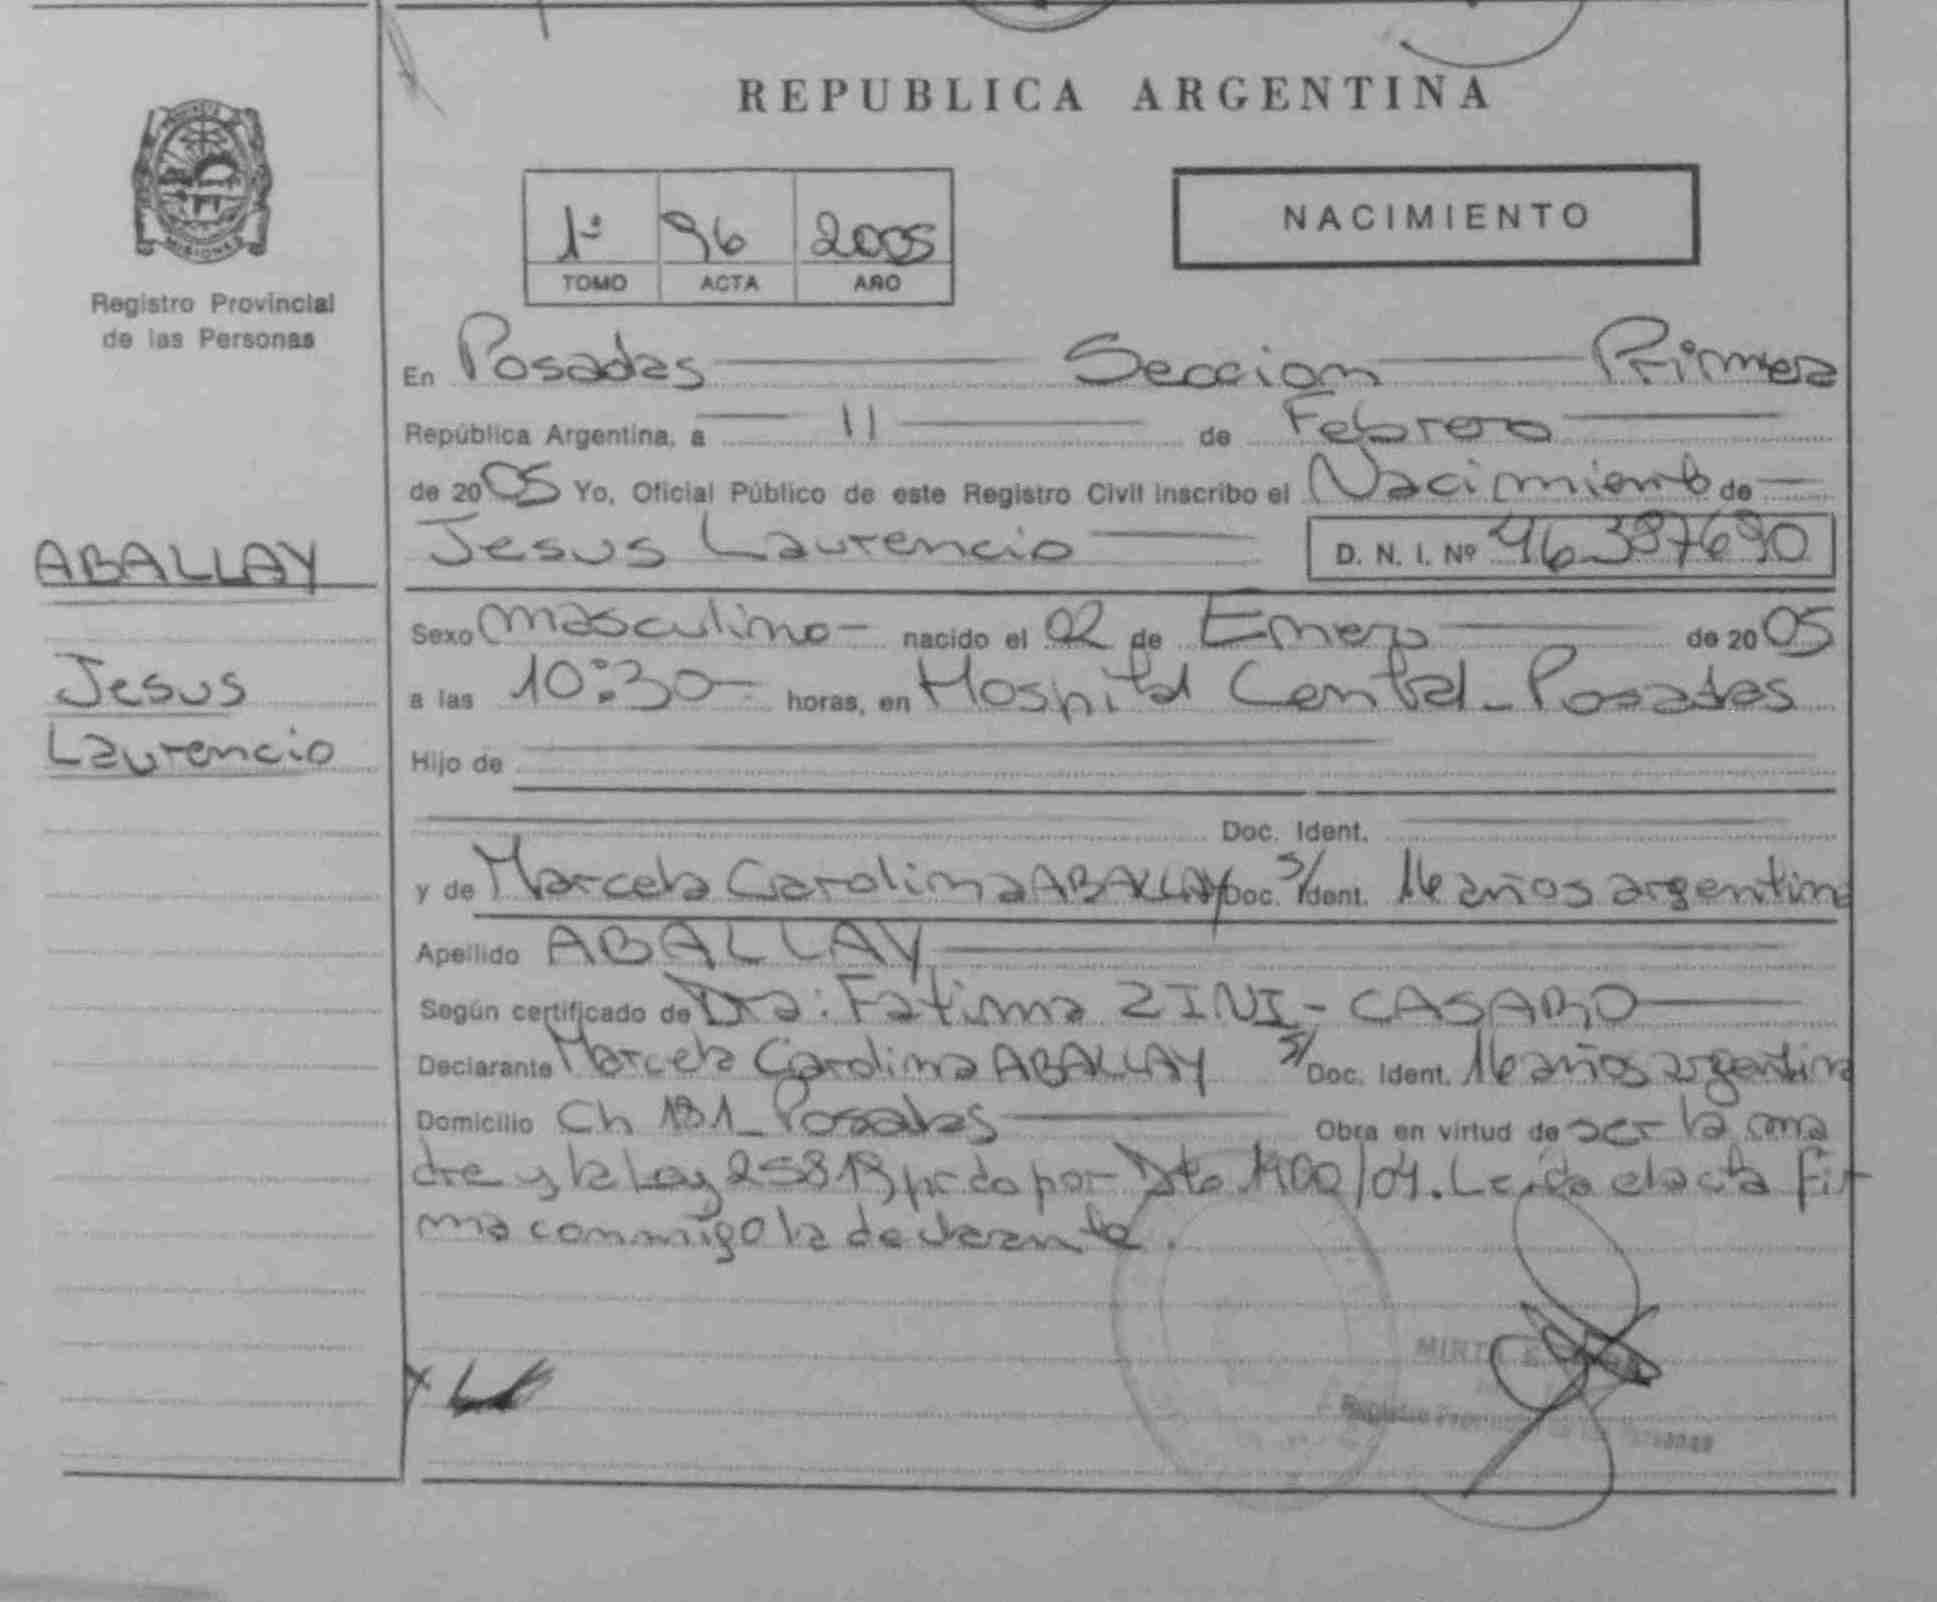 REPUBLICA ARGENTINA
MISIONES
Registro Provincial
de las Personas
1º 96 2005
TOMO ACTA AÑO
NACIMIENTO
En Posadas Seccion Primera
República Argentina, a 11 de Febrero
de 2005 Yo, Oficial Público de este Registro Civil inscribo el Nacimiento de
Jesus Laurencio D. N. I. Nº 46387690
ABALLAY
Jesus
Laurencio
Sexo masculino nacido el 02 de Enero de 2005
a las 10:30 horas, en Hospital Central - Posadas
Hijo de
Doc. Ident.
y de Marcela Carolina ABALLAY s/ Doc. Ident. 16 años argentina
Apellido ABALLAY
Según certificado de Dra: Fatima ZINI - CASARO
Declarante Marcela Carolina ABALLAY s/ Doc. Ident. 16 años argentina
Domicilio Ch 181 - Posadas Obra en virtud de ser la ma
dre y la Ley 25819 por Dto 1400/04. Leida el acta fir
ma conmigo la declarante.
MIRTA E.
Registro Provincial de las Personas